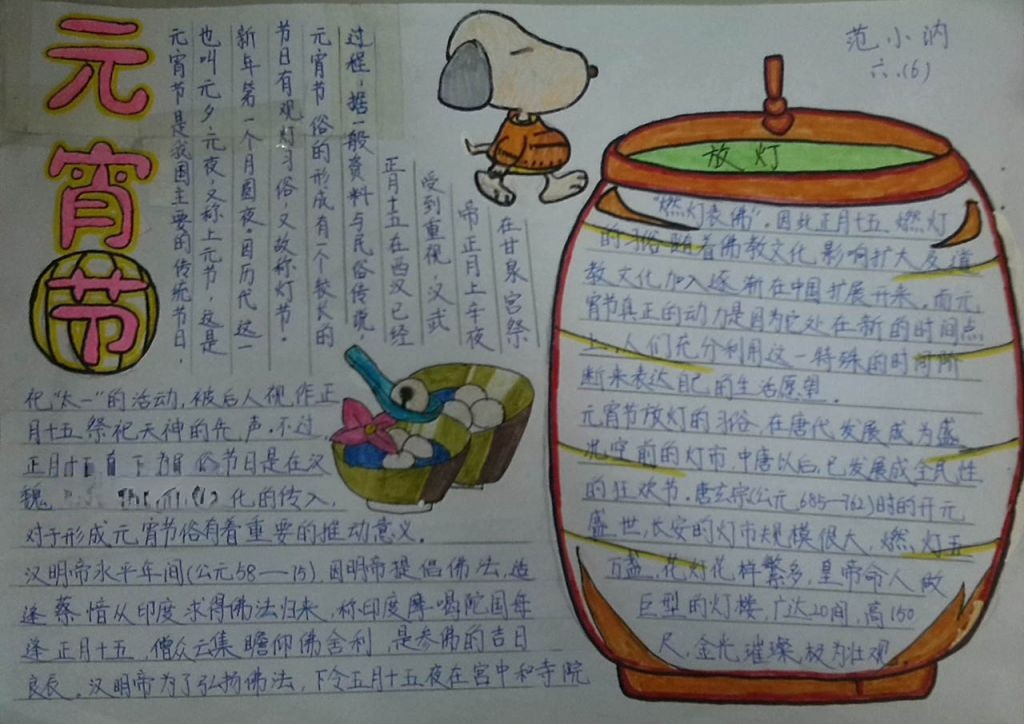 元宵节
范小汭
六.(6)
元宵节是我国主要的传统节日,
也叫元夕元夜,又称上元节,这是
新年第一个月圆夜.因历代这一
节日有观灯习俗,又故称灯节.
元宵节俗的形成有一个较长的
过程,据一般资料与民俗传说,
正月十五在西汉已经
受到重视,汉武
帝正月上辛夜
在甘泉宫祭
祀“太一”的活动,被后人视作正
月十五祭祀天神的先声.不过,
正月十五 节日是在汉
魏 化的传入,
对于形成元宵节俗有着重要的推动意义.
汉明帝永平年间(公元58—15).因明帝提倡佛法,适
逢蔡愔从印度求得佛法归来,称印度摩喝陀国每
逢正月十五,僧众云集瞻仰佛舍利,是参佛的吉日
良辰.汉明帝为了弘扬佛法,下令五月十五夜在宫中和寺院
放灯
“燃灯表佛”.因此正月十五燃灯
的习俗随着佛教文化影响扩大及道
教文化加入逐渐在中国扩展开来.而元
宵节真正的动力是因为它处在新的时间点
上,人们充分利用这一特殊的时间阶
断来表达自己的生活愿望.
元宵节放灯的习俗,在唐代发展成为盛
况空前的灯市,中唐以后,已发展成全民性
的狂欢节.唐玄宗(公元685-762)时的开元
盛世,长安的灯市规模很大,燃灯五
万盏,花灯花样繁多,皇帝命人做
巨型的灯楼,广达20间,高150
尺,金光璀璨,极为壮观.